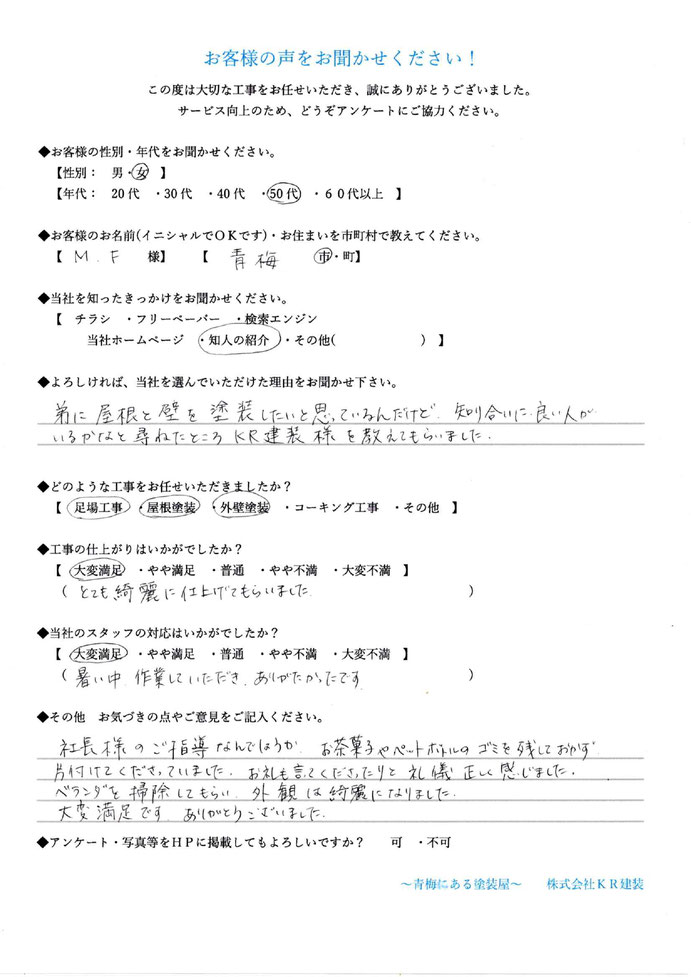 お客様の声をお聞かせください！
この度は大切な工事をお任せいただき、誠にありがとうございました。
サービス向上のため、どうぞアンケートにご協力ください。
◆お客様の性別・年代をお聞かせください。
【性別： 男・女 】
【年代： 20代 ・30代 ・40代 ・50代 ・６０代以上 】
◆お客様のお名前(イニシャルでＯＫです)・お住まいを市町村で教えてください。
【 M.F 様】 【 青梅 市・町】
◆当社を知ったきっかけをお聞かせください。
【 チラシ ・フリーペーパー ・検索エンジン
当社ホームページ ・知人の紹介 ・その他( ) 】
◆よろしければ、当社を選んでいただけた理由をお聞かせ下さい。
弟に屋根と壁を塗装したいと思っているんだけど、知り合いに良い人が
いるかなと尋ねたところKR建装様を教えてもらいました.
◆どのような工事をお任せいただきましたか？
【 足場工事 ・屋根塗装 ・外壁塗装 ・コーキング工事 ・その他 】
◆工事の仕上がりはいかがでしたか？
【 大変満足 ・やや満足 ・普通 ・やや不満 ・大変不満 】
( とても綺麗に仕上げてもらいました. )
◆当社のスタッフの対応はいかがでしたか？
【 大変満足 ・やや満足 ・普通 ・やや不満 ・大変不満 】
( 暑い中、作業していただき、ありがたかったです )
◆その他 お気づきの点やご意見をご記入ください。
社長様のご指導なんでほうか、お茶菓子やペットボトルのゴミを残しておかず
片付けてくださっていました. お礼も言てくださったりと礼儀正しく感じました.
ベランダを掃除してもらい、外観は綺麗になりました.
大変満足です. ありがとうございました.
◆アンケート・写真等をＨＰに掲載してもよろしいですか？ 可 ・不可
～青梅にある塗装屋～ 株式会社ＫＲ建装